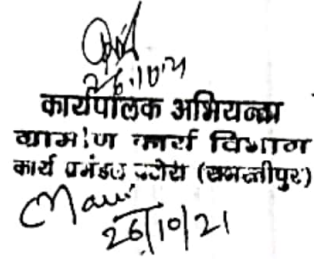 26.10.21
कार्यपालक अभियन्ता
ग्रामीण कार्य विभाग
कार्य प्रमंडल (समस्तीपुर)
26/10/21